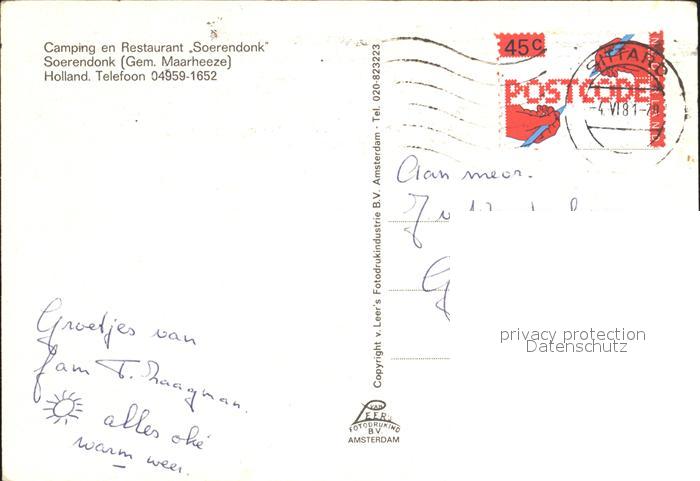 Camping en Restaurant „Soerendonk"
Soerendonk (Gem. Maarheeze)
Holland. Telefoon 04959-1652
Groetjes van
fam T. Zaagman.
alles oké
warm weer.
Copyright v. Leer's Fotodrukindustrie B.V. Amsterdam · Tel. 020-823223
VAN
LEER'S
FOTODRUKIND
B.V.
AMSTERDAM
45c
POSTCODE
SITTARD
-4.VI.81-
Aan
privacy protection
Datenschutz